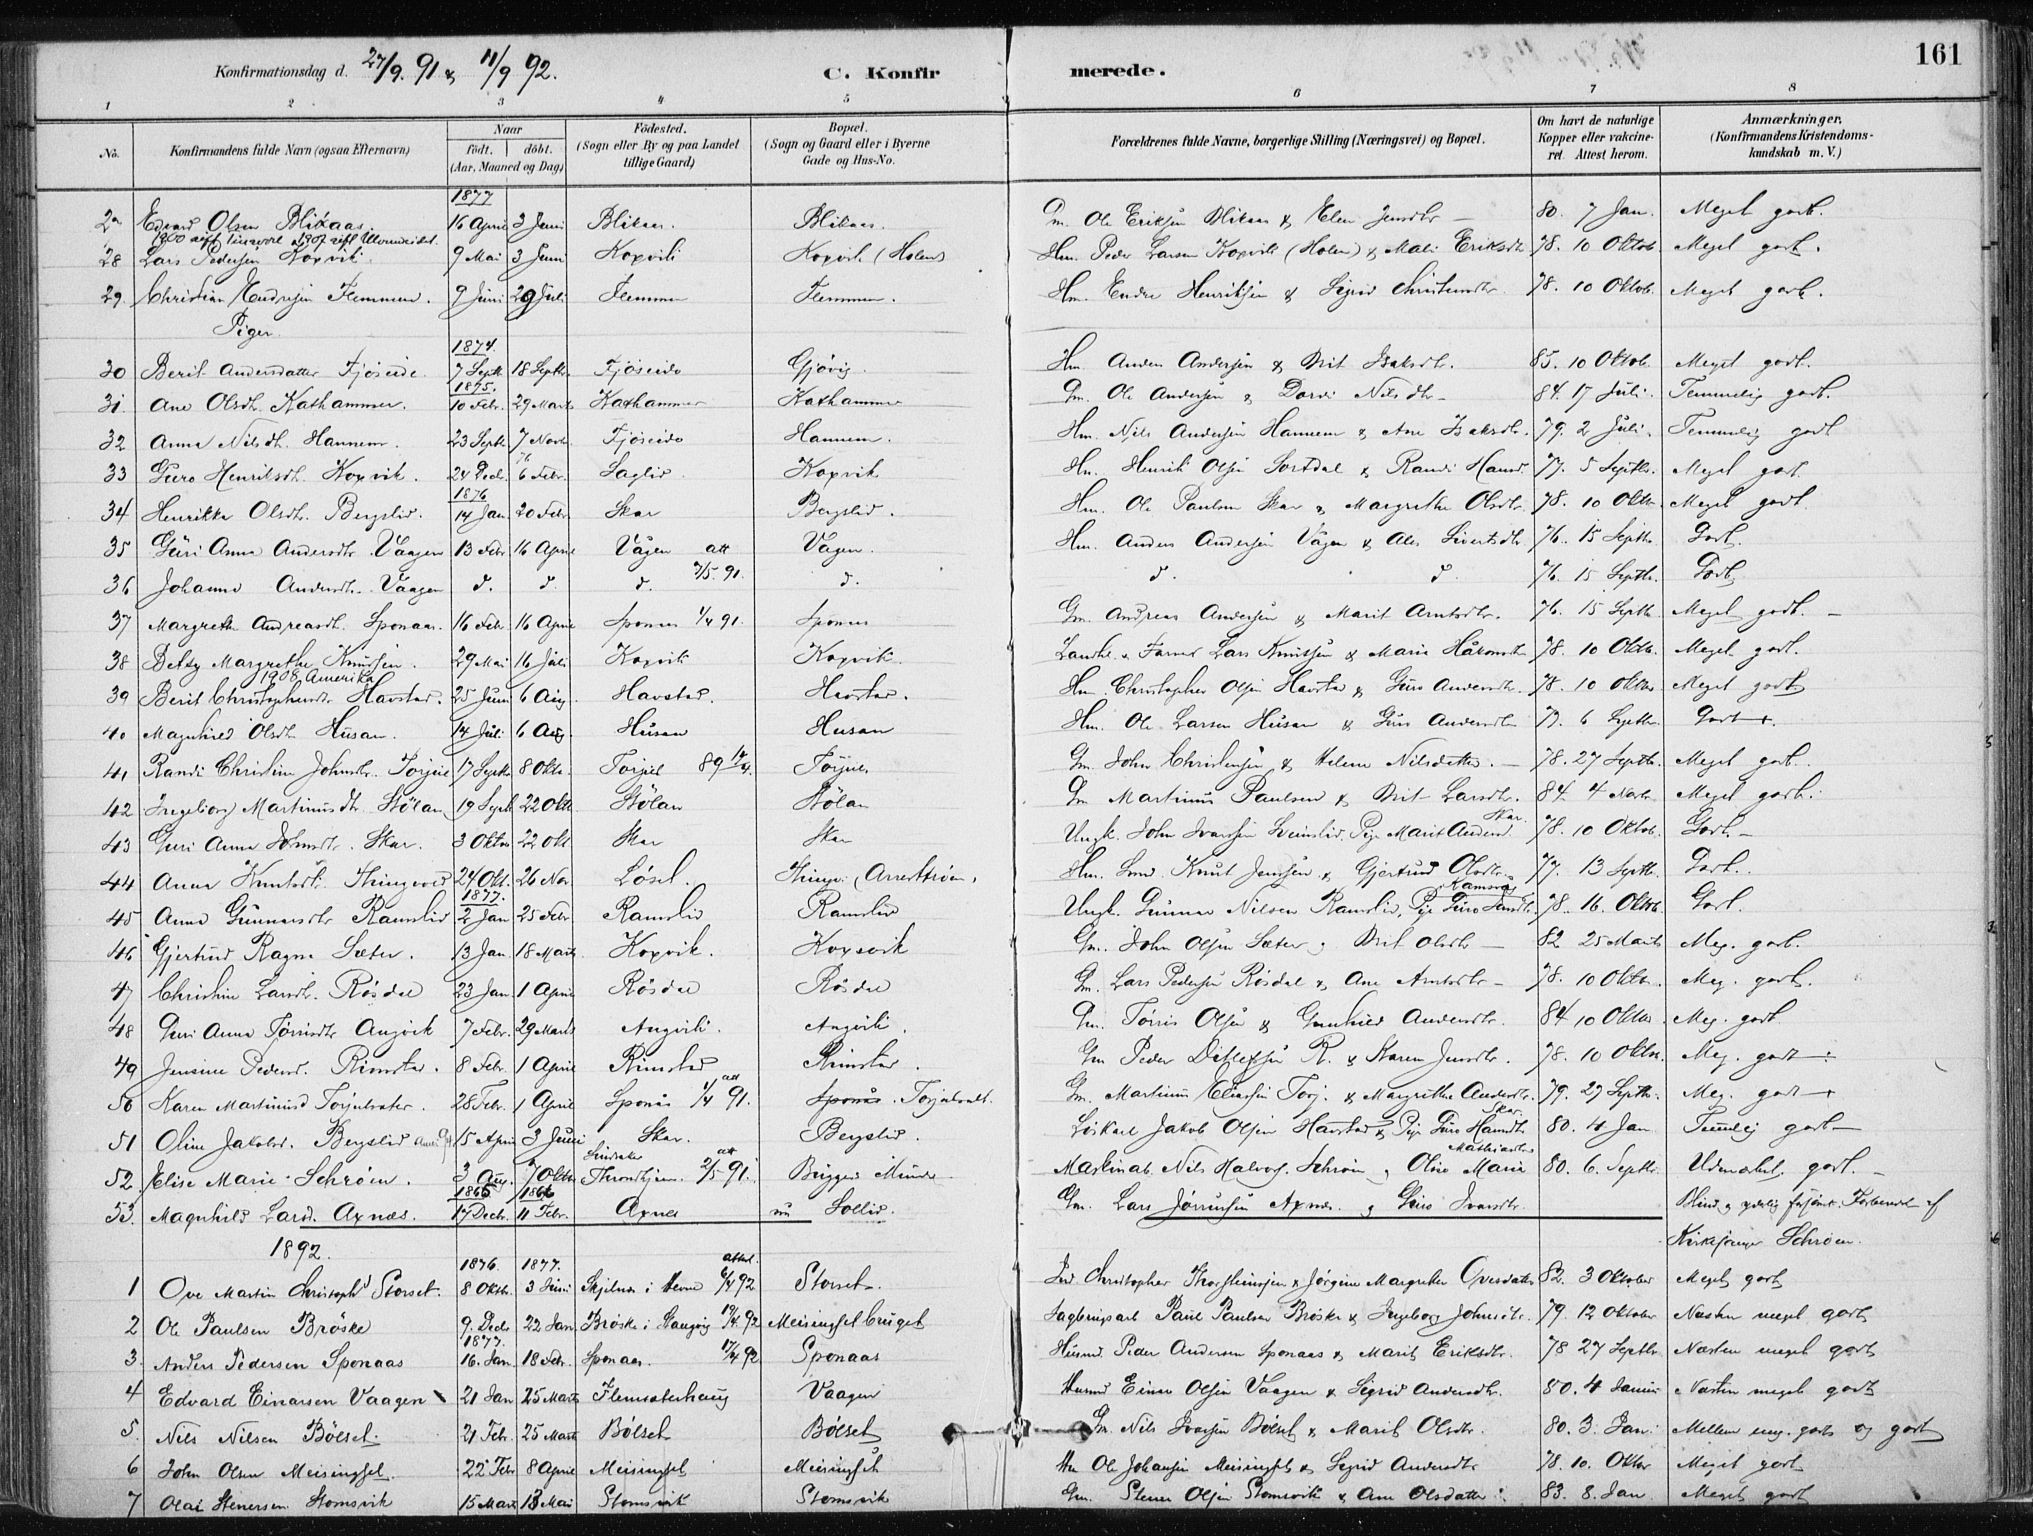 Konfirmationsdag d. 27/9. 91 & 11/9 92. C. Konfirmerede. 161
1 2 3 4 5 6 7 8
No. Konfirmandens fulde Navn (ogsaa Efternavn) Naar født. døbt. (Aar, Maaned og Dag) Fødested. (Sogn eller By og paa Landet tillige Gaard) Bopæl. (Sogn og Gaard eller i Byerne Gade og Hus-No. Forældrenes fulde Navne, borgerlige Stilling (Næringsvei) og Bopæl. Om havt de naturlige Kopper eller vakcineret. Attest herom. Anmærkninger, (Konfirmandens Kristendomskundskab m. V.)
1877
Edvard Olsen Blikaas 16 April 3 Juni Blikaas. Blikaas. Gm. Ole Eriksen Blikaas & Elen Jensdtr 80. 7 Jan. Meget godt.
28 Lars Pedersen Koxvik 9 Mai 3 Juni Koxvik Koxvik (Holen) Hm. Peder Larsen Koxvik (Holen) & Mali Eriksdtr 78. 10 Oktob. Meget godt.
29. Christian Endresen Flemmen. 9 Juni 29 Juli Flemmen Flemmen. Hm. Endre Henriksen & Sigrid Christensdtr 78. 10 Oktob. Meget godt.
Piger
1874.
30 Berit Andersdatter Fjøseide 7 Septb 18 Septbr. Fjøseide Gjøvig Hm. Anders Andersen & Brit Isaksdtr. 85. 10 Oktob. Meget godt.
1875.
31. Ane Olsdtr. Kathammer. 10 Febr. 29 Marts Kathammer Kathammer Gm. Ole Andersen & Dordi Nilsdtr 84. 17 Juli. Temmelig godt.
32 Anna Nilsdtr. Hannem. 23 Septb. 7 Novb. Fjøseide Hannem. Hm. Nils Andersen Hannem & Ane Isaksdtr. 79. 2 Juli. Temmelig godt
33 Guro Henriksdtr. Koxvik. 24 Decb. 76 6 Febr. Saglid Koxvik Hm. Henrik Olsen Sortdal & Randi Hansd. 77. 5 Septbr. Meget godt
1876
34 Henrikke Olsdtr. Bergslid. 14 Jan. 20 Febr. Skar Bergslid. Hm. Ole Paulsen Skar & Margrethe Olsdtr. 78. 10 Oktb. Meget godt
35 Guri Anna Andersdtr. Vaagen 13 Febr 16 April Vågen att Vågen. Hm. Anders Andersen Vågen & Ales Sivertsdtr. 76. 15 Septbr. Godt.
36 Johanne Andersdtr. Vaagen d. d. d. 2/5 91. d. d. d. 76. 15 Septbr. Godt
37 Margreth Andreasdt. Sponaas. 16 Febr. 16 April Sponås 1/4 91. Sponås Gm. Andreas Andersen & Marit Arntsdtr. 76. 15 Septb Meget godt.
38 Betsy Margrethe Knutsen. 29 Mai 16 Juli Koxvik Koxvik Lars Knutsen & Marie Håkonsdtr 78. 10 Oktb. Meget godt.
1908 Amerika
39 Berit Christophersdtr Havstad. 25 Juni 6 Aug. Havstad. Havstad. Hm. Christopher Olsen Havstad & Guro Andersdtr. 78. 10 Oktbr Meget godt
40 Magnhild Olsdt Husan. 14 Juli 6 Aug. Husan Husan Hm. Ole Larsen Husan & Guro Andersdtr 6 Septbr. Godt +.
41 Randi Christine Johnsdtr. Torjul 17 Septb 8 Oktb. Torjul 89 Torjul. Gm. John Christensen & Helene Nilsdatter. 78. 27 Septbr. Meget godt.
42 Ingeborg Martinusdtr. Stølan 19 Septb 22 Okt. Stølan Stølan Gm Martinus Paulsen & Brit Larsdtr. 84. 4 Novbr Meget godt.
43 Guri Anna Johnsdtr. Skar. 3 Oktbr 22 Okt Skar Skar Ungk. John Ivarsen Sveinslid. Pige Marit Andersd. Skar. 78. 10 Oktob. Godt.
44 Anna Knutsdt. Thingvold 24 Okt. 26 Nov. Løset. Thingv. (Arrestrøen. Hm. Smed Knut Jensen & Gjertrud Olsdtr. 77. 13 Septb. Godt.
1877.
45 Anna Gunnarsdtr Ramslid 2 Jan 25 Febr Ramslid Ramslid Ungk. Gunnar Nilsen Ramslid, Pige Guro Jensdtr. 78. 16. Oktob. Godt.
46 Gjertrud Ragna Sæter. 13 Jan. 18 Marts Koxvik. Koxsvik Gm. John Olsen Sæter & Brit Olsdtr 82 25 Marts Meg. godt.
47 Christine Larsdt. Røsdal 23 Jan. 1 April Røsdal Røsdal Gm. Lars Pedersen Røsdal & Ane Arntsdtr 78. 10 Oktb. Meg. godt.
48 Guri Anna Tørrisdtr Angvik 7 Febr. 29 Marts Angvik. Angvik. Gm. Tørris Olsen & Gunhild Andersdtr. 84 10 Oktbr. Meg. godt
49 Jensine Pedersd. Rimstad. 8 Febr. 1 April Rimstad Rimstad. Gm Peder Ditlefsen R. & Karen Jensdtr. 78. 10 Oktbr. Meg. godt
50 Karen Martinusd Torjulvater. 28 Febr. 1 April Sponås 1/4 att 91. Sponås. Torjulvatt. Gm. Martinus Eliasen Torj. & Margrethe Andersdtr. 79. 27 Septb. Meg. godt +
51 Oline Jakobsd. Bergslid 15 April 3 Juni Skar. Bergslid. Løskarl Jakob Olsen Havstad & Pige Guro Hansdtr Skar. 80. 4 Jan Temmelig godt
52. Elise Marie Schrøen. 3 Aug. 7 Oktbr Throndhjem. att 2/5 91. Briggen Munde Maskinab. Nils Halvors. Schrøen & Oline Marie Mathiasdtr 80. 6. Septbr. Udmærket godt.
1865 1866
53. Magnhild Larsd. Axnæs. 17 Decbr. 11 Febr. Axnes nu Sollid. Gm. Lars Jørunsen Axnæs. & Guro Ivarsdtr. Blind & yderlig forsømt. Forberedt af
1892. Kirkesanger Schrøen.
1876. 1877.
1 Ove Martin Christophd Storset. 8 Oktb. 3 Juni Skjelnes i Hevne attest. 6/4 92 Storset. Christopher Thorsteinsen & Jørgine Margrethe Ovesdatter 82. 3 Oktober Meget godt
2 Ole Paulsen Brøske 9. Decbr 22 Jan Brøske i Stangvig 19/4. 92 Meisingsetbruget Sagbrugsarb. Paul Paulsen Brøske & Ingeborg Johnsdtr. 79. 12 Oktober Næsten meget godt
1877.
3. Anders Pedersen Sponaas 16. Jan 18 Febr. Sponaas. 17/4 92 Sponaas Husmd Peder Andersen Sponaas & Marit Eriksdtr. 78 27 Septbr. Næsten meget godt
4 Edvard Einarsen Vaagen 21 Jan 25 Marts Flemsæterhaug Vaagen Husmd Einar Olsen Vaagen & Sigrid Andersdtr. 80. 4 Januar Næsten meget godt
5. Nils Nilsen Bølset. 21 Febr. 25 Marts Bølset Bølset Gm. Nils Ivarsen Bølset & Marit Olsdtr. 80. 3. Jan. Mellem meg. godt og godt
6 John Olsen Meisingset. 22 Febr 8 April Meisingset Meisingset Hm Ole Johansen Meisingset & Sigrid Andersdtr 78. 10. Oktbr Meget godt
7 Olai Stenersen Stomsvik 15 Marts 13 Mai Stomsvik Stomsvik Gm. Stener Olsen Stomsvik & Ane Olsdatter. 83. 8. Jan. Meget godt